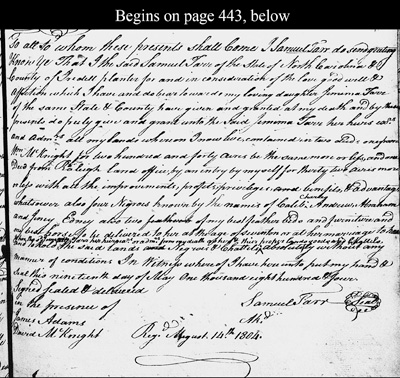 Begins on page 443, below
To all to whom these presents shall Come I Samuel Tarr do send greeting
Know Ye That I the said Samuel Tarr of the State of North Carolina &
County of Iredell planter for and in consideration of the love good will &
affection which I have and do bear towards my loving daughter Jemima Tarr
of the same State & County have given and granted at my death and by these
presents do freely give and grant unto the said Jemima Tarr her heirs
and Admrs all my lands whereon I now live, contained in two
Wm McKnight for two hundred and forty acres be the same more or less, and one
Deed from Raleigh Land office, by an entry by myself for thirty two acres more
or less with all the improvements, profits, priviledges, and benefits, & advantages
whatsoever also four Negroes known by the names of Caleb, Andrew, Abraham
and Jincy Caney also two feathers of my best feather beds and furniture and
my best horse to be delivered to her at the age of seventeen or at her marriage
said Lands and Negroes & Chattels
manner of conditions In Witness whereof I have hereunto put my hand &
Seal this nineteenth day of May One thousand eight hundred & four
Signed sealed & delivered
in the presence of
Samuel Tarr
Seal
James Adams
David McKnight
Reg. August. 14th 1804.